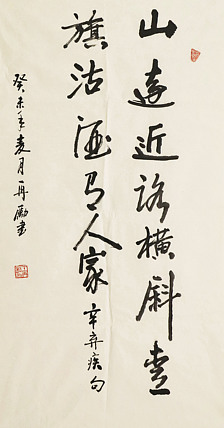 山遠近路横斜青
旗沽酒有人家 辛弃疾句
癸未年夏月 励書